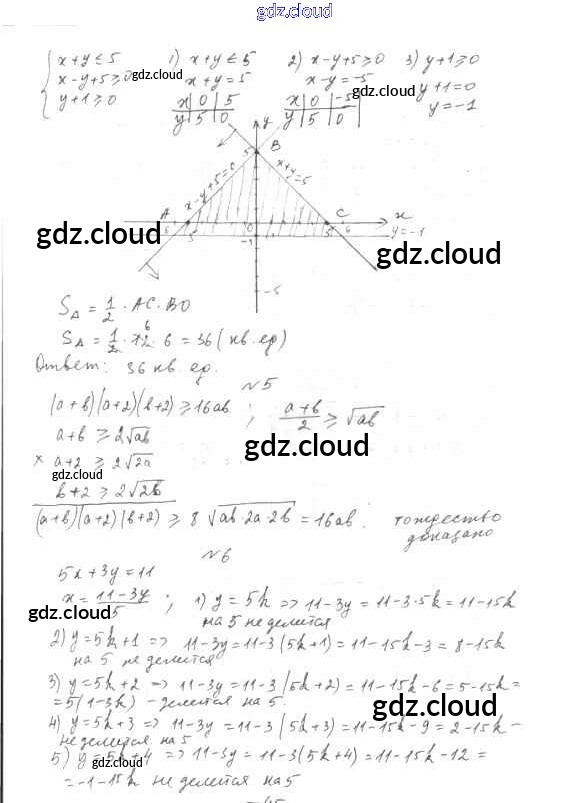 gdz.cloud
x+y≤5 1) x+y≤5 2) x-y+5≥0 3) y+1≥0
x-y+5≥0 gdz.cloud x+y=5 x-y=-5 gdz.cloud y+1=0
y+1≥0 x | 0 | 5 x | 0 | -5 y=-1
y | 5 | 0 y | 5 | 0
y
5 B
x-y+5=0 x+y=5
A C x
6 5 0 5 6 y=-1
gdz.cloud -1 gdz.cloud
-5
S△ = 1/2 · AC · BO
S△ = 1/2 · 12 · 6 = 36 (кв. ед)
6
Ответ: 36 кв. ед.
№5
(a+b)(a+2)(b+2) ≥ 16ab ; (a+b)/2 ≥ √ab
a+b ≥ 2√ab
x a+2 ≥ 2√2a gdz.cloud
gdz.cloud
b+2 ≥ 2√2b
(a+b)(a+2)(b+2) ≥ 8√ab·2a·2b = 16ab. тождество
доказано
№6
5x+3y=11
x = (11-3y)/5 ; 1) y=5k => 11-3y = 11-3·5k = 11-15k
gdz.cloud на 5 не делится
2) y=5k+1 => 11-3y = 11-3(5k+1) = 11-15k-3 = 8-15k
на 5 не делится
3) y=5k+2 => 11-3y = 11-3(5k+2) = 11-15k-6 = 5-15k =
= 5(1-3k) - делится на 5. gdz.cloud
4) y=5k+3 => 11-3y = 11-3(5k+3) = 11-15k-9 = 2-15k -
не делится на 5
5) y=5k+4 => 11-3y = 11-3(5k+4) = 11-15k-12 =
gdz.cloud
= -1-15k не делится на 5